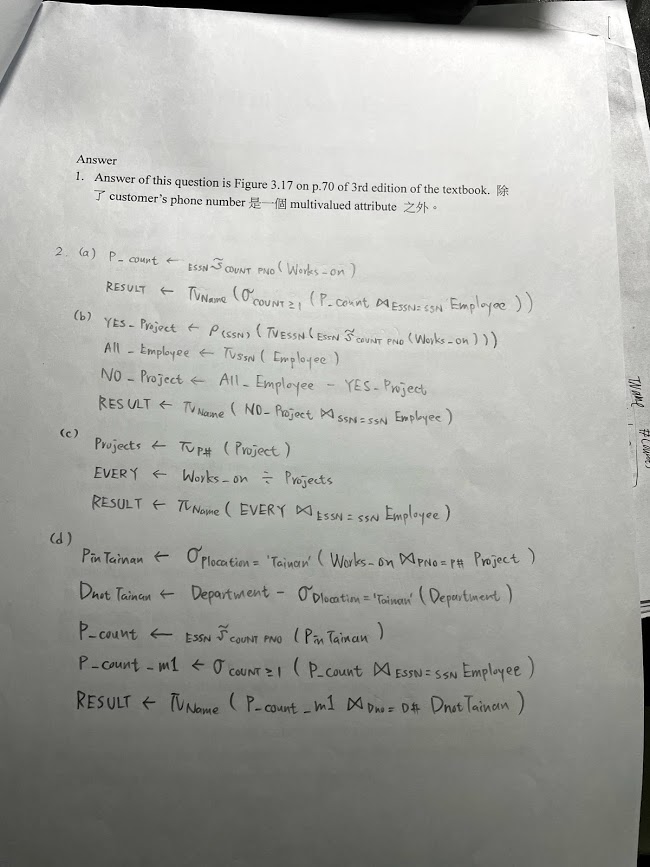 Answer
1. Answer of this question is Figure 3.17 on p.70 of 3rd edition of the textbook. 除
了 customer's phone number 是一個 multivalued attribute 之外。
2. (a) P_count ← ESSN ℱ COUNT PNO (Works_on)
RESULT ← π Name (σ COUNT ≥ 1 (P_count ⋈ ESSN = SSN Employee))
(b) YES_Project ← ρ (SSN) (π ESSN (ESSN ℱ COUNT PNO (Works_on)))
All_Employee ← π SSN (Employee)
NO_Project ← All_Employee − YES_Project
RESULT ← π Name (NO_Project ⋈ SSN = SSN Employee)
(c) Projects ← π P# (Project)
EVERY ← Works_on ÷ Projects
RESULT ← π Name (EVERY ⋈ ESSN = SSN Employee)
(d)
PinTainan ← σ Plocation = 'Tainan' (Works_on ⋈ PNO = P# Project)
DnotTainan ← Department − σ Dlocation = 'Tainan' (Department)
P_count ← ESSN ℱ COUNT PNO (PinTainan)
P_count_m1 ← σ COUNT ≥ 1 (P_count ⋈ ESSN = SSN Employee)
RESULT ← π Name (P_count_m1 ⋈ Dno = D# DnotTainan)